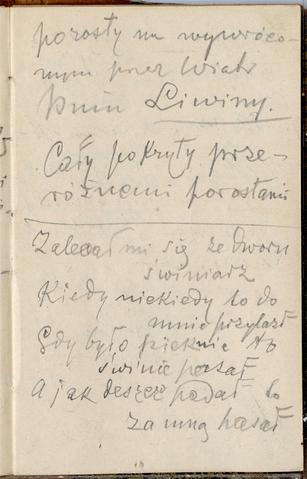 porosty na wywróco-
nym przez Wiatr
Pniu Liwiny.
Cały pokryty prze-
różnemi porostami
Zalecał mi się ze dworu
świniarz
Kiedy niekiedy to do
mnie przylazł
Gdy było pięknie to
świnie pasał
A jak deszcz padał to
za mną hasał